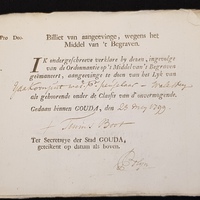 Pro Deo.
Billet van aangeevinge, wegens het
Middel van 't Begraven.
IK ondergeschreeve verklare by deezen, ingevolge
van de Ordonnantie op 't Middel van 't Begraven
geëmaneert, aangeevinge te doen van het Lyk van
als gehoorende onder de Classe van d'onvermogende.
Gedaan binnen GOUDA, den 26 1799
Teunis Boot
Ter Secretarye der Stad GOUDA,
getekent op datum als boven.